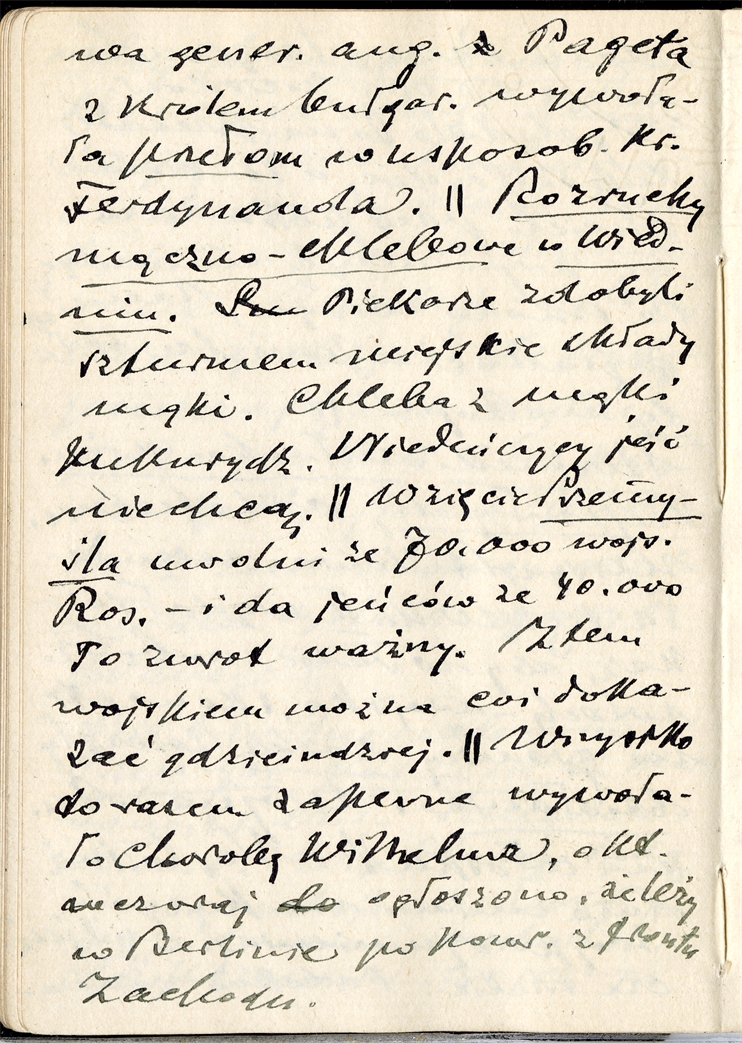 wa gener. ang. Pageta
z Królem bułgar. wywoła-
ła przełom w usposob. Kr.
Ferdynanda. || Rozruchy
mączno-chlebowe w Wied-
niu. Piekarze zdobyli
szturmem miejskie składy
mąki. Chleba z mąki
Kukurydz. Wiedeńczycy jeść
niechcą. || Wzięcie Przemy-
śla uwolni ze 70.000 wojs.
Ros. – i da jeńców ze 40.000
To zwrot ważny. Z tem
wojskiem można coś doka-
zać gdzieindziej. || Wszystko
to razem zapewne wywoła-
ło chorobę Wilhelma, o kt.
wczoraj ogłoszono, że leży
w Berlinie po powr. z frontu
Zachodu.